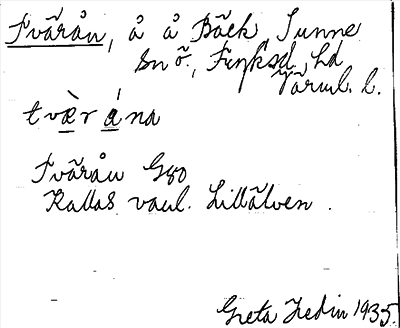 Tvärån, å å Bäck, Sunne
sn ö., Fryksd. hd
Värml. l.
tvæ̀r ána
Tvärån G80
Kallas vanl. Lillälven.
Greta Hedin 1935.